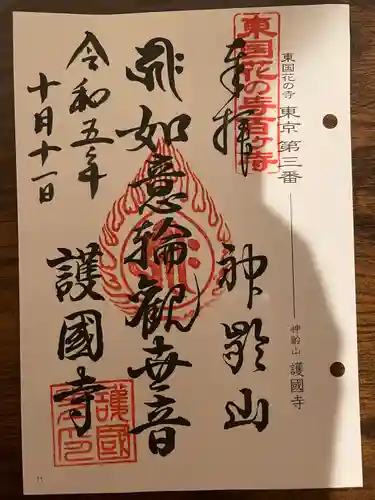 東京 第三番
東国花の寺
神齢山 護國寺
東国花の寺百ヶ寺
奉拝
神齢山
如意輪観世音
護國寺
令和五年
十月十一日
護國